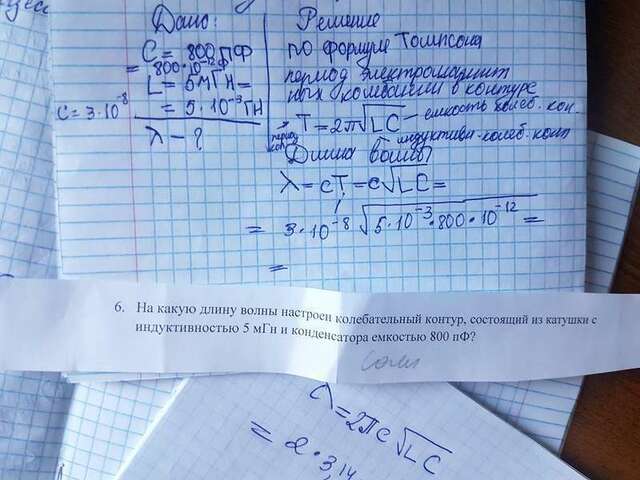 Дано:
C = 800 пФ
= 800·10⁻¹² Ф
L = 5 мГн =
= 5·10⁻³ Гн
c = 3·10⁻⁸
λ – ?
Решение
по формуле Томпсона
период электромагнит
ных колебаний в контуре
T = 2π√LC – емкость колеб. кон.
период
кол.
индуктивн. колеб. конт
Длина волны
λ = cT = c√LC =
= 3·10⁻⁸ √5·10⁻³·800·10⁻¹² =
=
6. На какую длину волны настроен колебательный контур, состоящий из катушки с
индуктивностью 5 мГн и конденсатора емкостью 800 пФ?
λ = 2πc√LC
= 2·3,14